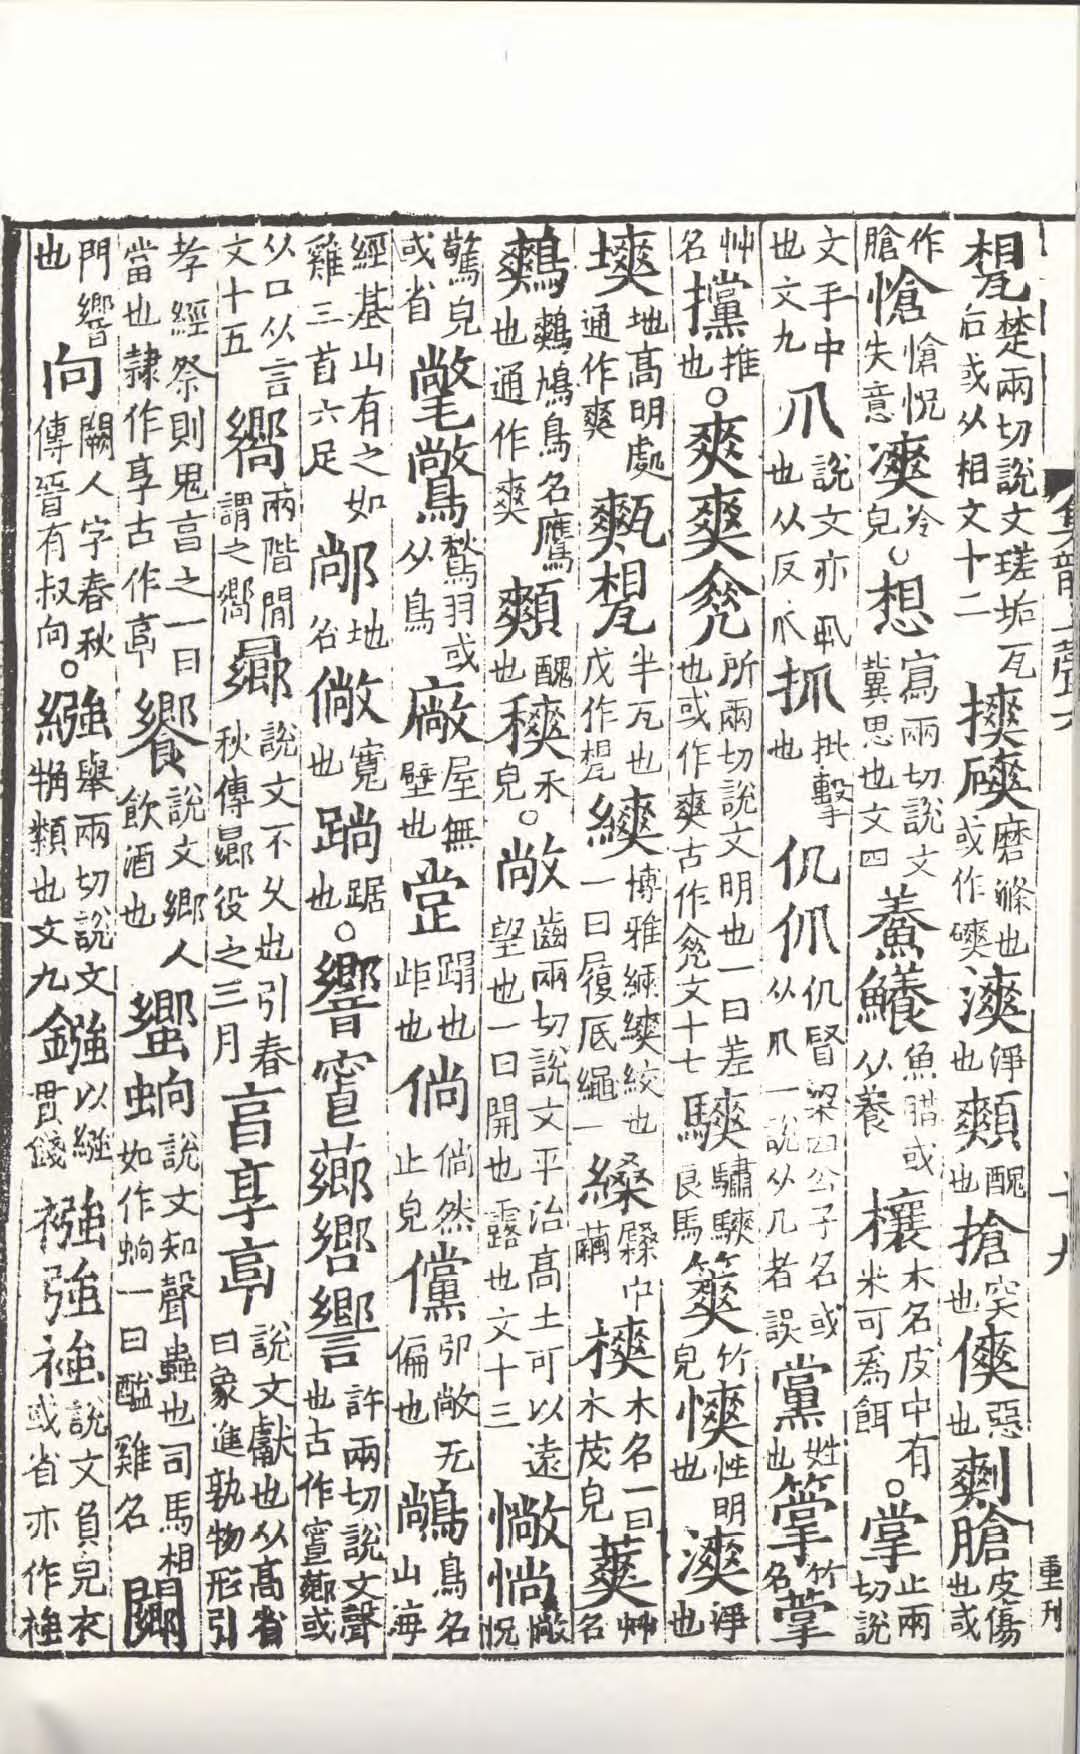 㼽楚兩切說文瑳垢瓦石或从相文十二摤䃥磨滌也或作䃥漺淨也䫪醜也搶突也傸惡也皮傷也或
作愴愴怳失意冷皃○想寫兩切說文冀思也文四鯗鱶魚腊或从養欀木名皮中有米可爲餌○掌止兩切說
文手中也文九爪說文亦丮也从反爪抓批擊也仉仉梁四公子名或从爪一說从几者誤黨姓也竹名
艸名攩推也○爽所兩切說文明也一曰差也或作爽古作文十七騻驌騻良馬竹皃慡性明也漺淨也
塽地高明處通作爽半瓦也或作博雅緉絞也一曰履底繩一縔巾樉木名一曰木茂皃艸名
鷞鷞鳩鳥名鷹也通作爽䫪醜也禾皃○敞齒兩切說文平治高土可以遠望也一曰開也露也文十三惝怳
驚皃或省氅鷩鶖羽或从鳥廠屋無壁也距也岠也倘倘然止皃儻卬敞无偏也鳥名山海
經基山有之如雞三首六足地名僘寬也踞也○響薌許兩切說文聲也古作薌或
从口从言文十五兩階閒謂之曏說文不久也引春秋傳曏役之三月亯享說文獻也从高省曰象進孰物形引
孝經祭則鬼亯之一曰當也隸作享古作亭饗說文鄉人飲酒也蠁蚼說文知聲蟲也司馬相如作蚼一曰醯雞名
門響也向闕人字春秋傳晉有叔向○繈舉兩切說文牊類也文九鏹以繈貫錢襁強說文負皃衣或省亦作
集韻上聲六
十九
重刊